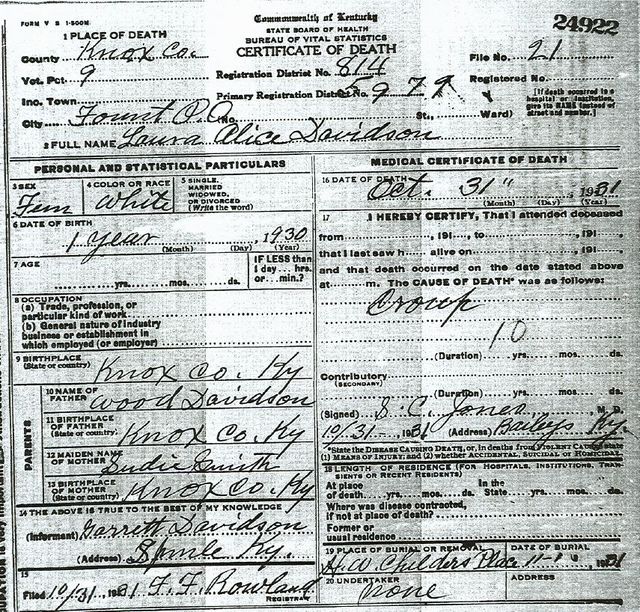 FORM V S 1-500M
Commonwealth of Kentucky
STATE BOARD OF HEALTH
BUREAU OF VITAL STATISTICS
CERTIFICATE OF DEATH
24922
1 PLACE OF DEATH
County Knox Co.
Vot. Pct. 9
Inc. Town
City Fount P.O. No. St., Ward)
Registration District No. 814
Primary Registration District No. 979
File No. 21
Registered No.
[If death occurred in a
hospital or institution,
give its NAME instead of
street and number.]
2 FULL NAME Laura Alice Davidson
PERSONAL AND STATISTICAL PARTICULARS
3 SEX Fem
4 COLOR OR RACE White
5 SINGLE,
MARRIED
WIDOWED,
OR DIVORCED
(Write the word)
6 DATE OF BIRTH
1 year 1930
(Month) (Day) (Year)
7 AGE
yrs. mos. ds.
IF LESS than
1 day ... hrs.
or ... min.?
8 OCCUPATION
(a) Trade, profession, or
particular kind of work
(b) General nature of industry
business or establishment in
which employed (or employer)
9 BIRTHPLACE
(State or country) Knox Co. Ky
PARENTS
10 NAME OF
FATHER Wood Davidson
11 BIRTHPLACE
OF FATHER
(State or country) Knox Co. Ky
12 MAIDEN NAME
OF MOTHER Sudie Smith
13 BIRTHPLACE
OF MOTHER
(State or country) Knox Co. Ky
14 THE ABOVE IS TRUE TO THE BEST OF MY KNOWLEDGE
(Informant) Garrett Davidson
(Address) Ky.
15
Filed 10/31 1931 F. F. Rowland
REGISTRAR
MEDICAL CERTIFICATE OF DEATH
16 DATE OF DEATH
Oct. 31" 1931
(Month) (Day) (Year)
17 I HEREBY CERTIFY, That I attended deceased
from , 191 , to , 191
that I last saw h alive on , 191
and that death occurred on the date stated above
at m. The CAUSE OF DEATH* was as follows:
Croup
10
(Duration) yrs. mos. ds.
Contributory
(SECONDARY)
(Duration) yrs. mos. ds.
(Signed) S. C. Jones M. D.
10/31 1931 (Address) Baileys Ky.
*State the DISEASE CAUSING DEATH, or, in deaths from VIOLENT CAUSES state
(1) MEANS OF INJURY; and (2) whether ACCIDENTAL, SUICIDAL or HOMICIDAL
18 LENGTH OF RESIDENCE (FOR HOSPITALS, INSTITUTIONS, TRANSIENTS OR RECENT RESIDENTS)
At place In the
of death yrs. mos. ds. State yrs. mos. ds.
Where was disease contracted,
if not at place of death?
Former or
usual residence
19 PLACE OF BURIAL OR REMOVAL DATE OF BURIAL
H. W. Childers Place 11-1 1931
20 UNDERTAKER ADDRESS
none